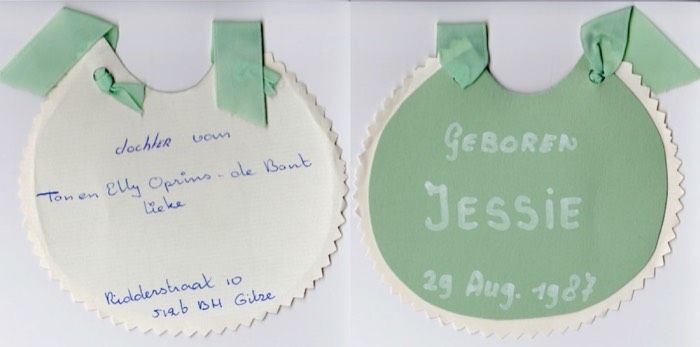 dochter van
Ton en Elly Oprins - de Bont
Lieke
Ridderstraat 10
5126 BH Gilze
GEBOREN
JESSIE
29 Aug. 1987